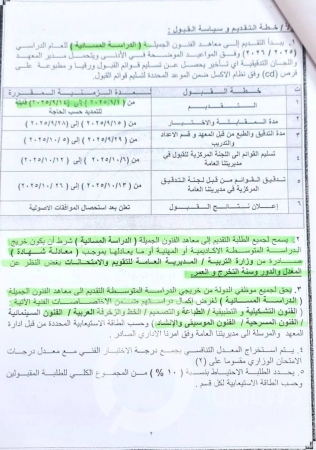 / خطة التقديم و سياسة القبول :
١. يبدأ التقديم إلى معاهد الفنون الجميلة ( الدراسة المسائية ) للعام الدراسي
(٢٠٢٥ / ٢٠٢٦) وفق المواعيد الموضحة في أدناه ويتحمل مدير المعهد
واللجان التدقيقية أي تأخير يحصل عن تسليم قوائم القبول ورقيا و مطبوعة على
قرص (cd) وفق نظام الاكسل ضمن الموعد المحدد لتسليم قوائم القبول.
ت خطة القبول المدة الزمنية المقررة
١ التقديم من (٢٠٢٥/٩/١) (٢٠٢٥/٩/١٤) قابلة للتمديد حسب الحاجة
٢ مدة المقابلة والاختبار من (٢٠٢٥/٩/١٥) (٢٠٢٥/٩/٢٨)
٣ مدة التدقيق والطبع من قبل المعهد و قسم الاعداد والتدريب من (٢٠٢٥/٩/٢٩) (٢٠٢٥/١٠/٥)
٤ تسليم القوائم الى اللجنة المركزية للقبول في مديريتنا العامة من (٢٠٢٥/١٠/٦)
٥ تدقيق القوائم من قبل لجنة التدقيق المركزية في مديريتنا العامة من (٢٠٢٥/١٠/١٣)
٦ إعلان نتائج القبول تعلن بعد استحصال الموافقات الاصولية
٢. يسمح لجميع الطلبة التقديم إلى معاهد الفنون الجميلة (الدراسة المسائية) شرط أن يكون خريج
الدراسة المتوسطة الاكاديمية أو المهنية أو ما يعادلها بموجب (معادلة شهادة)
صادرة من وزارة التربية / المديرية العامة للتقويم والامتحانات بغض النظر عن
المعدل والدور وسنة التخرج والعمر.
٣. يحق لجميع موظفي الدولة من خريجي الدراسة المتوسطة التقديم الى معاهد الفنون الجميلة
(الدراسة المسائية) لغرض إكمال دراستهم ضمن الاختصاصات الفنية الآتية
(الفنون التشكيلية و التطبيقية / الطباعة والتصميم / الخط والزخرفة العربية / الفنون السينمائية
/ الفنون المسرحية / الفنون الموسيقى والإنشاد) وحسب الطاقة الاستيعابية المحددة من قبل ادارة
المعهد والمرسلة الى مديريتنا العامة وفق امرنا الاداري الصادر.
٤. يتم استخراج المعدل التنافسي بجمع درجة الاختبار الفني مع معدل درجات
الامتحان الوزاري مقسوما على (٢)
٥. يحدد الطلبة الاحتياط بنسبة ( ١٠ % ) من المجموع الكلي للطلبة المقبولين
وحسب الطاقة الاستيعابية لكل قسم .
٢